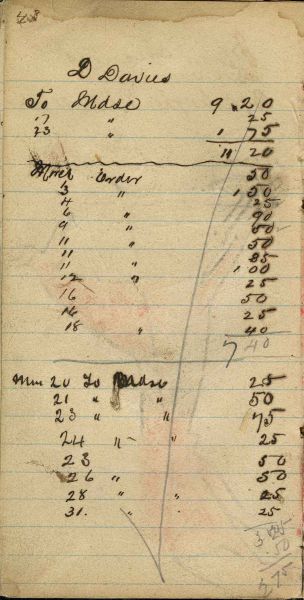 D Davies
To Mdse 9 20
17 " 25
23 " 1 75
11 20
Order 50
3 " 1 50
4 25
6 " 90
9 " 50
11 " 50
11 " 85
11 " 1 00
12 " 25
16 50
16 25
18 " 40
7 40
20 To Mdse 25
21 " " 50
23 " " 75
24 " " 25
23 50
26 " 50
28 " " 25
31. " 25
3.25
50